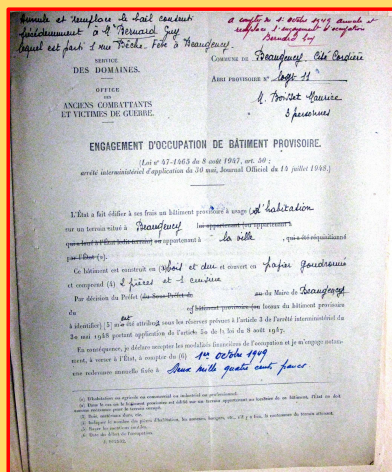 Annule et remplace le bail consenti
précédemment à Mr Bernard Guy
lequel est parti 1 rue Bèche-Fève à Beaugency.
à compter du 1er octobre 1949 annule et
remplace l'engagement d'occupation
Bernard Guy
SERVICE
DES DOMAINES.
OFFICE
DES
ANCIENS COMBATTANTS
ET VICTIMES DE GUERRE.
COMMUNE DE Beaugency Cité Cordière
ABRI PROVISOIRE N° logt 11
M. Boisset Maurice
3 personnes
ENGAGEMENT D'OCCUPATION DE BÂTIMENT PROVISOIRE.
(Loi n° 47-1465 du 8 août 1947, art. 50 ;
arrêté interministériel d'application du 30 mai, Journal Officiel du 14 juillet 1948.)
L'État a fait édifier à ses frais un bâtiment provisoire à usage (1) d'habitation
sur un terrain situé à Beaugency lui appartenant ou appartenant à
qui a loué à l'État ledit terrain ou appartenant à la ville , qui a été réquisitionné
par l'État (2).
Ce bâtiment est construit en (3) bois et dur et couvert en papier goudronné
et comprend (4) 2 pièces et 1 cuisine
Par décision du Préfet (du Sous-Préfet de ou du Maire de Beaugency
du , ce bâtiment provisoire (ou locaux du bâtiment provisoire
à identifier) (5) m'est attribué sous les réserves prévues à l'article 3 de l'arrêté interministériel du
30 mai 1948 portant application de l'article 50 de la loi du 8 août 1947.
En conséquence, je déclare accepter les modalités financières de l'occupation et je m'engage notam-
ment, à verser à l'État, à compter du (6) 1er octobre 1949
une redevance annuelle fixée à Deux mille quatre cents francs
(1) D'habitation ou agricole ou commercial ou industriel ou professionnel.
(5) Rayer les mentions inutiles.
(6) Date du début de l'occupation.